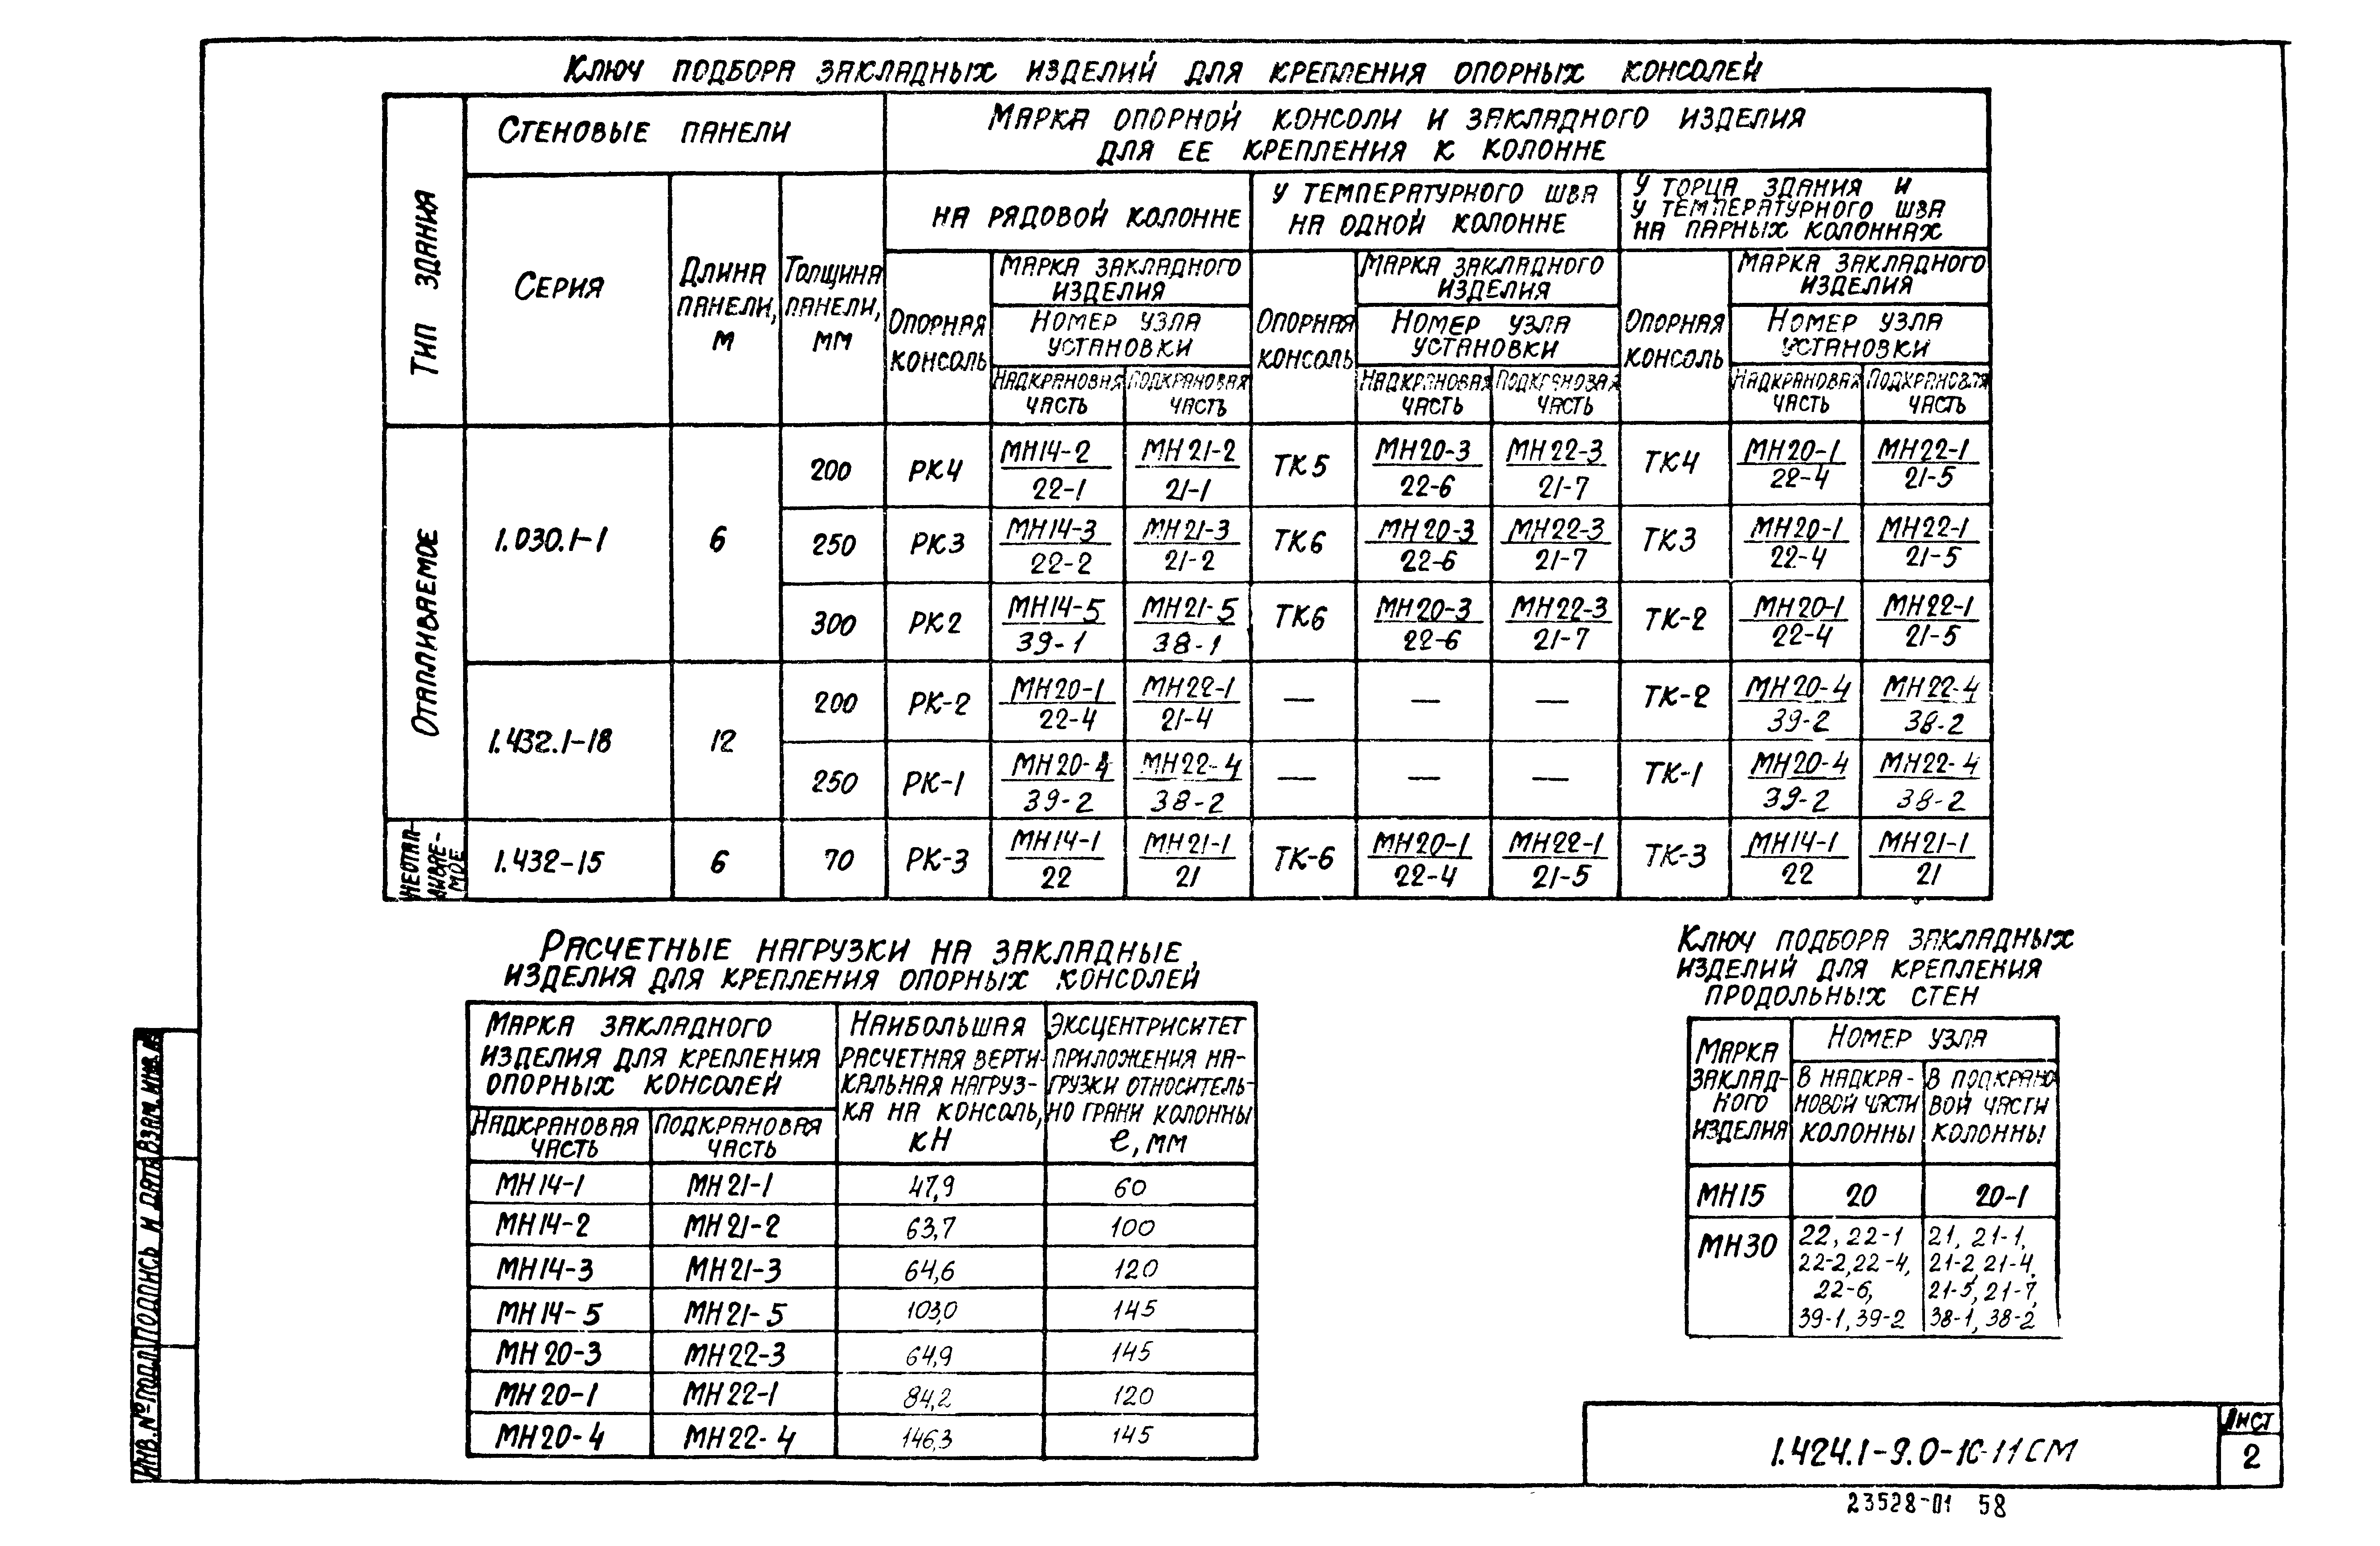 Ключ подбора закладных изделий для крепления опорных консолей
Тип здания
Стеновые панели
Марка опорной консоли и закладного изделия
для ее крепления к колонне
Серия
Длина панели, м
Толщина панели, мм
на рядовой колонне
у температурного шва
на одной колонне
у торца здания и
у температурного шва
на парных колоннах
Опорная консоль
Марка закладного изделия
Номер узла установки
Надкрановая часть
Подкрановая часть
Опорная консоль
Марка закладного изделия
Номер узла установки
Надкрановая часть
Подкрановая часть
Опорная консоль
Марка закладного изделия
Номер узла установки
Надкрановая часть
Подкрановая часть
Отапливаемое
1.030.1-1 6
200 РК4 МН14-2 МН21-2 ТК5 МН20-3 МН22-3 ТК4 МН20-1 МН22-1
22-1 21-1 22-6 21-7 22-4 21-5
250 РК3 МН14-3 МН21-3 ТК6 МН20-3 МН22-3 ТК3 МН20-1 МН22-1
22-2 21-2 22-6 21-7 22-4 21-5
300 РК2 МН14-5 МН21-5 ТК6 МН20-3 МН22-3 ТК-2 МН20-1 МН22-1
39-1 38-1 22-6 21-7 22-4 21-5
1.432.1-18 12
200 РК-2 МН20-1 МН22-1 — — — ТК-2 МН20-4 МН22-4
22-4 21-4 39-2 38-2
250 РК-1 МН20-4 МН22-4 — — — ТК-1 МН20-4 МН22-4
39-2 38-2 39-2 38-2
Неотап-
ливае-
мое
1.432-15 6 70 РК-3 МН14-1 МН21-1 ТК-6 МН20-1 МН22-1 ТК-3 МН14-1 МН21-1
22 21 22-4 21-5 22 21
Расчетные нагрузки на закладные
изделия для крепления опорных консолей
Марка закладного
изделия для крепления
опорных консолей
Надкрановая часть
Подкрановая часть
Наибольшая
расчетная верти-
кальная нагруз-
ка на консоль,
кН
Эксцентриситет
приложения на-
грузки относитель-
но грани колонны
e, мм
МН14-1 МН21-1 47,9 60
МН14-2 МН21-2 63,7 100
МН14-3 МН21-3 64,6 120
МН14-5 МН21-5 103,0 145
МН20-3 МН22-3 64,9 145
МН20-1 МН22-1 84,2 120
МН20-4 МН22-4 146,3 145
Ключ подбора закладных
изделий для крепления
продольных стен
Марка
заклад-
ного
изделия
Номер узла
в надкра-
новой части
колонны
в подкрано
вой части
колонны
МН15 20 20-1
МН30
22, 22-1
22-2, 22-4,
22-6,
39-1, 39-2
21, 21-1,
21-2, 21-4,
21-5, 21-7,
38-1, 38-2
Инв. № подл.
Подпись и дата
Взам. инв. №
1.424.1-9.0-1С-11СМ
Лист
2
23528-01 58